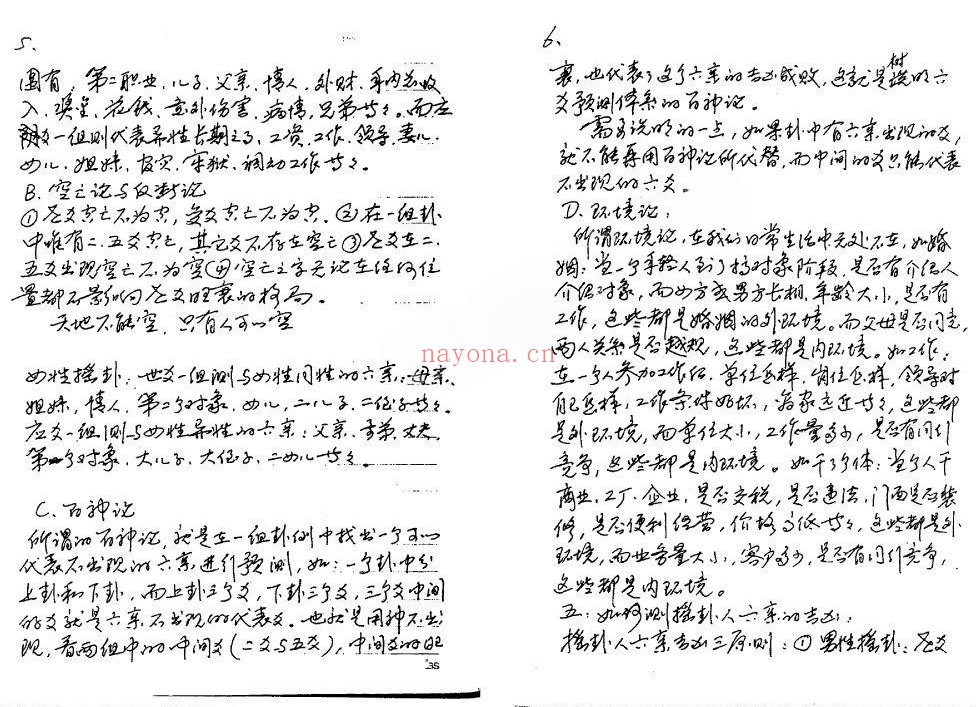 5.
圆有，第二职业，儿子，父亲，情人，外财，年内总收
入，奖金，花钱，意外伤害，病情，兄弟等等。而应
爻一组则代表异性长期之事，工资，工作，领导，妻儿
女儿，姐妹，官灾，牢狱，调动工作等等。
B. 空亡论与反封论
①世爻空亡不为空，变爻空亡不为空。②在一组卦
中唯有二、五爻空亡，其它爻不存在空亡③世爻在二、
五爻出现空亡不为空④空亡之字无论在任何位
置都不影响世爻旺衰的格局。
天地不能空，只有人可以空
女性摇卦：世爻一组测与女性同性的六亲：母亲、
姐妹，情人，第二个对象，女儿，二儿子，二侄子等等。
应爻一组测与女性异性的六亲：父亲、兄弟、丈夫
第一个对象、大儿子、大侄子、二女儿等等。
C. 百神论
所谓的百神论，就是在一组卦例中找出一个可以
代表不出现的六亲进行预测，如：一个卦中分
上卦和下卦，而上卦三个爻，下卦三个爻，三个爻中间
的爻就是六亲不出现的代表爻。也就是用神不出
现，看两组中的中间爻（二爻与五爻），中间爻的旺
35
6.
衰，也代表了这个六亲的吉凶成败，这就是树说的六
爻预测体系的百神论。
需要说明的一点，如果卦中有六亲出现的爻，
就不能再用百神论所代替，而中间的爻只能代表
不出现的六爻。
D. 环境论：
所谓环境论，在我们日常生活中无处不在，如婚
姻：当一个年轻人到了找对象阶段，是否有介绍人
介绍对象，而女方或男方长相，年龄大小，是否有
工作，这些都是婚姻的外环境。而父母是否同意，
两人关系是否越规，这些都是内环境。如工作：
在一个人参加工作后，单位怎样，岗位怎样，领导对
自己怎样，工作条件好坏，离家远近等等，这些都
是外环境，而单位大小，工作量多少，是否有同行
竞争，这些都是内环境。如干个体：当个人干
商业，工厂，企业，是否交税，是否违法，门面是否装
修，是否便利经营，价格高低等等，这些都是外
环境，而业务量大小，客户多少，是否有同行竞争，
这些都是内环境。
五：如何测摇卦人六亲的吉凶：
摇卦人六亲吉凶三原则：①男性摇卦：世爻
nayona.cn